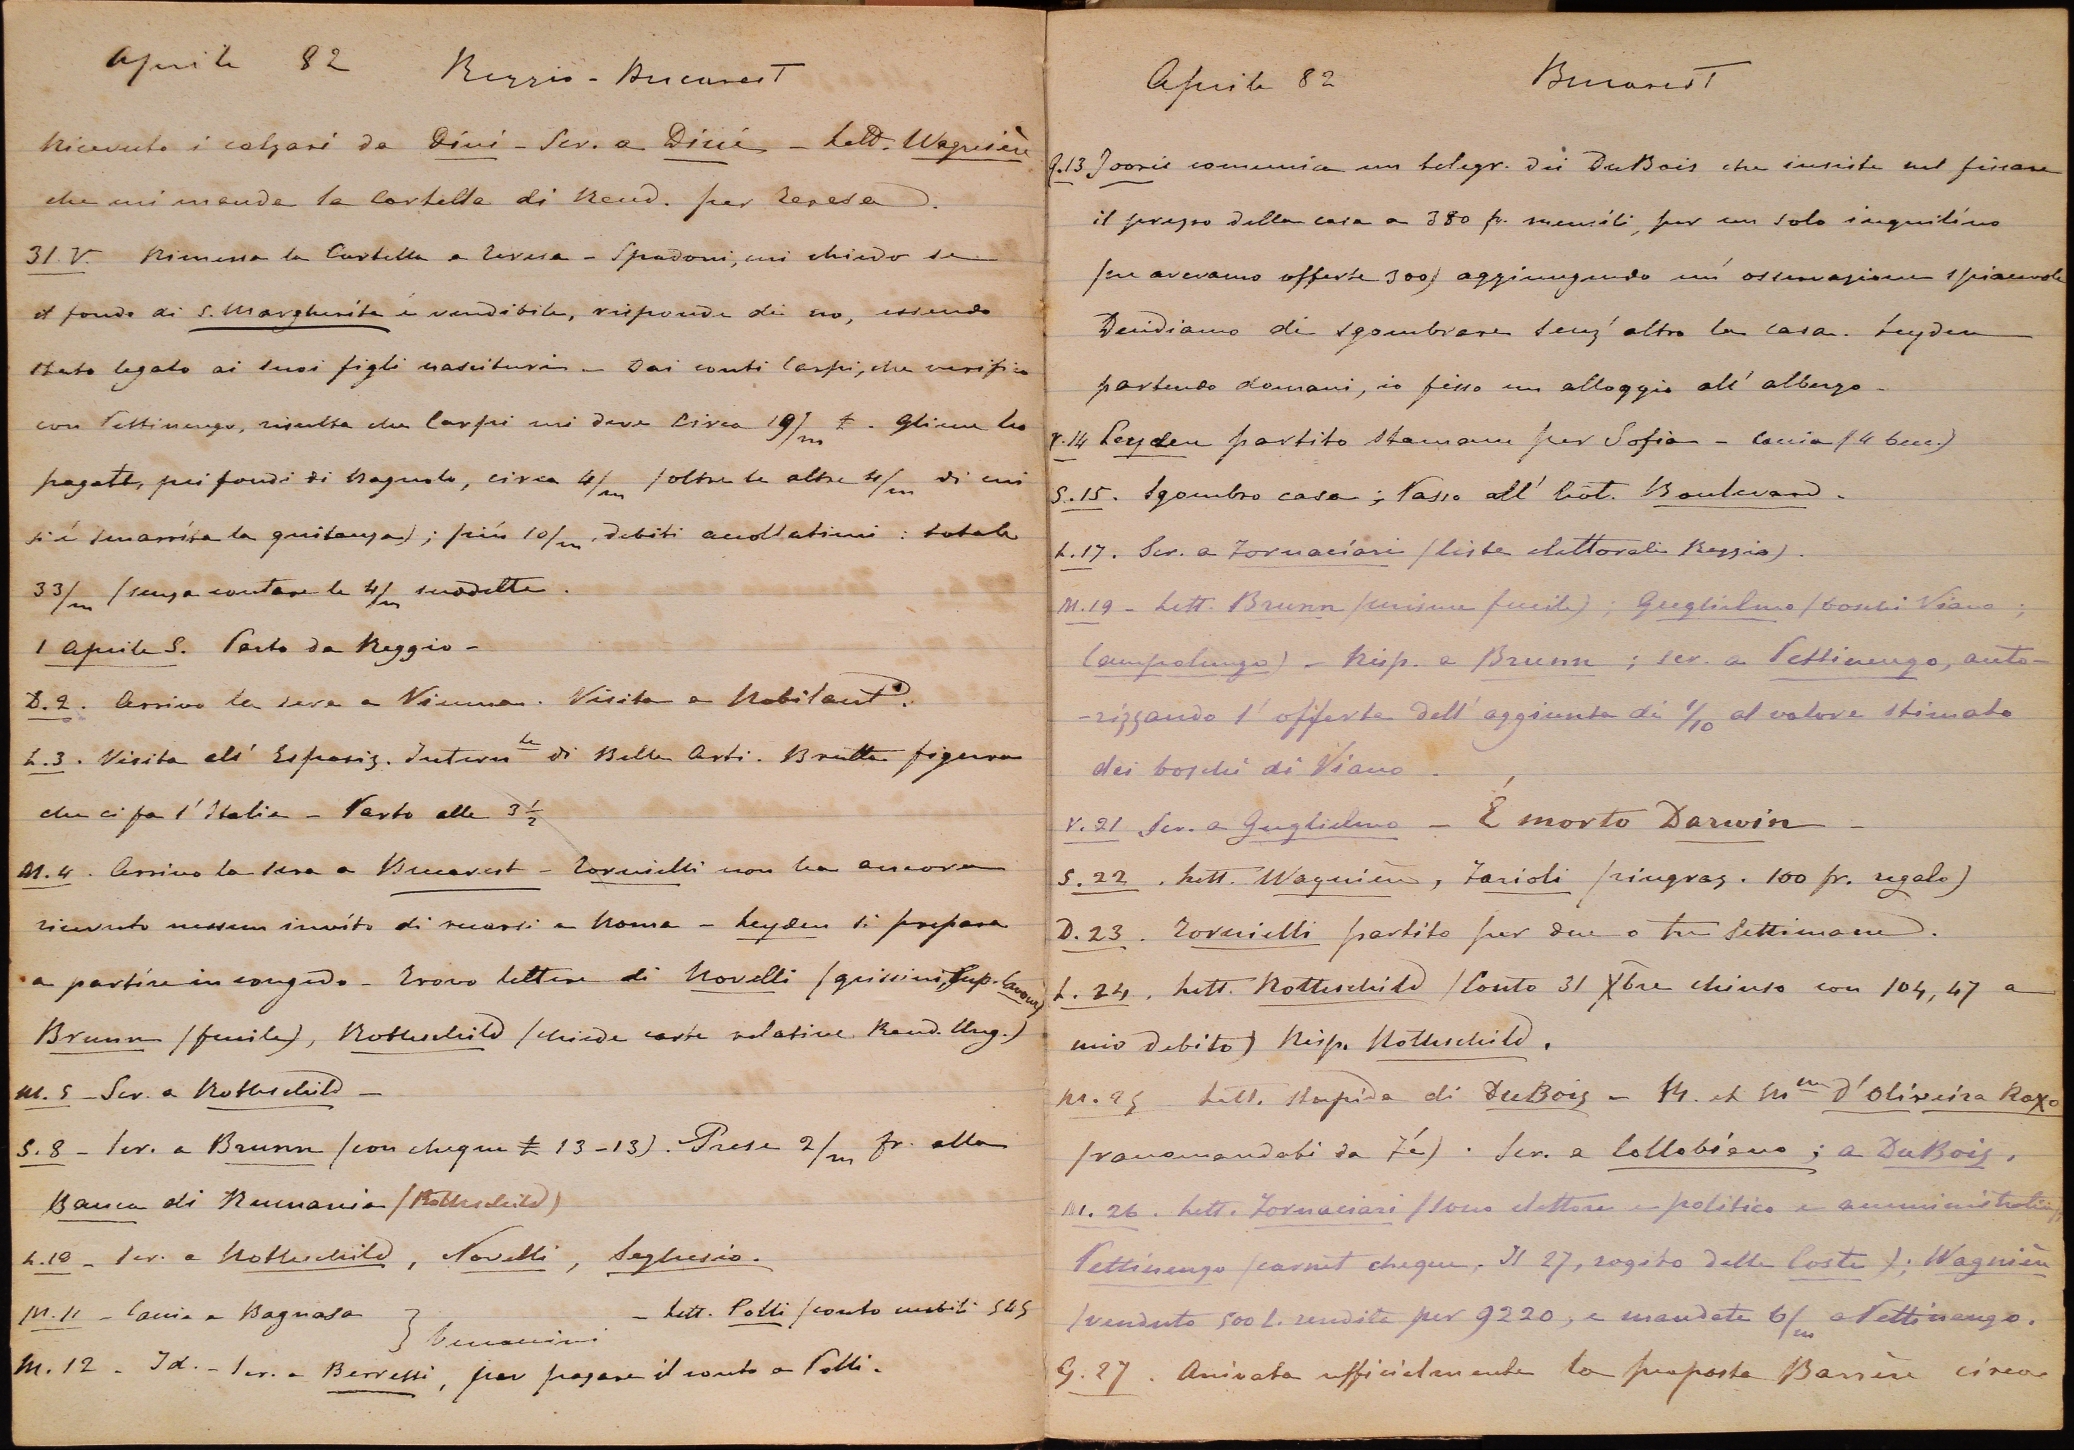 Aprile 82 Reggio - Bucarest
Ricevuto i calzari da Dini - Scr. a Dini - Lett. Wagnière
che mi manda la Cartella di Rend. per Teresa.
31. V. Rimessa la Cartella a Teresa - Spadoni, cui chiedo se
il fondo di S. Margherita è vendibile, risponde di no, essendo
stato legato ai suoi figli nascituri - Dai conti Carpi, che verifico
con Pettinengo, risulta che Carpi mi deve circa 19/m £. Gliene ho
pagate, pei fondi di Bagnolo, circa 4/m (oltre le altre 4/m di cui
si è smarrita la quitanza); più 10/m debiti accollatimi: totale
33/m (senza contare le 4/m suddette.
1 Aprile S. Parto da Reggio -
D. 2. Arrivo la sera a Vienna. Visita a Robilant.
L. 3. Visita all' Esposiz. Intern.le di Belle Arti. Brutta figura
che ci fa l'Italia - Parto alle 3 1/2
M. 4. Arrivo la sera a Bucarest - Tornielli non ha ancora
ricevuto nessun invito di recarsi a Roma - Leyden si prepara
a partire in congedo - Trovo lettere di Novelli (grissini, Sup. Cavour)
Brunn (fucile), Rothschild (chiede carte relative Rend. Ung.)
M. 5 - Scr. a Rothschild -
S. 8 - Scr. a Brunn (con cheque £ 13-13). Prese 2/m fr. alla
Banca di Rumania (Rothschild)
L. 10 - Scr. a Rothschild, Novelli, Seghesio.
M. 11 - Caccia a Bagnasa } beccaccini - Lett. Polli (conto mobili 545
M. 12 - Id. - Scr. a Berretti, per pagare il conto a Polli.
Aprile 82 Bucarest
G. 13 Jooris comunica un telegr. dei DuBois che insiste nel fissare
il prezzo della casa a 380 fr. mensili, per un solo inquilino
(ne avevamo offerte 300) aggiungendo un' osservazione spiacevole
Decidiamo di sgombrare senz' altro la casa. Leyden
partendo domani, io fisso un alloggio all' albergo -
V. 14 Leyden partito stamane per Sofia - Caccia (4 becc.)
S. 15. Sgombro casa; Passo all' hôt. Boulevard.
L. 17. Scr. a Fornaciari (liste elettorali Reggio).
M. 19 - Lett. Brunn (revisione fucile); Guglielmo (boschi Viano;
Campolungo) - Risp. a Brunn; scr. a Pettinengo, auto-
-rizzando l' offerta dell' aggiunta di 1/10 al valore stimato
dei boschi di Viano.
V. 21 Scr. a Guglielmo - È morto Darwin -
S. 22. Lett. Wagnière, Farioli (ringraz. 100 fr. regalo)
D. 23. Tornielli partito per due o tre settimane.
L. 24. Lett. Rothschild (Conto 31 Xbre chiuso con 104,47 a
mio debito) Risp. Rothschild.
M. 25 Lett. stupida di DuBois - M. et Mme d'Oliveira Roxo
(raccomandati da Fé). Scr. a Collobiano; a DuBois.
M. 26. Lett. Fornaciari (sono elettore e politico e amministrativo)
Pettinengo (carnet cheque, Il 27, rogito delle Coste); Wagnière
(venduto 500 L. rendita per 9220, e mandate 6/m a Pettinengo.
G. 27. Arrivata ufficialmente la proposta Barrère circa